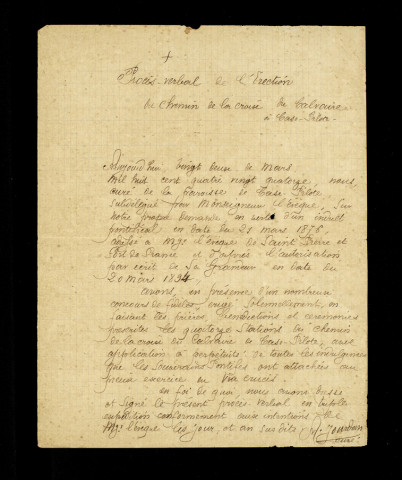 +
Procès-verbal de l'Erection
du Chemin de la Croix du Calvaire
à Case-Pilote
Aujourd'hui, vingt deux de Mars
Mil huit cent quatre vingt quatorze, nous
curé de la Paroisse de Case-Pilote
subdélégué par Monseigneur l'Evêque, sur
notre propre demande en vertu d'un indult
pontifical en date du 21 mars 1876,
à Mgr l'Evêque de Saint Pierre et
Fort de France et d'après l'autorisation
par écrit de Sa Grandeur en date du
20 Mars 1894
avons, en présence d'un nombreux
concours de fidèles, érigé solennellement, en
faisant les prières, bénédictions et cérémonies
prescrites les quatorze Stations du Chemin
de la croix du Calvaire de Case-Pilote, avec
application à perpétuité de toutes les indulgences
que les Souverains Pontifes ont attachées au
pieux exercice du Via Crucis.
en foi de quoi, nous avons dressé
et signé le présent procès verbal en double
expédition conformément aux intentions de
Mgr l'Evêque les jour, et an sus dits
curé